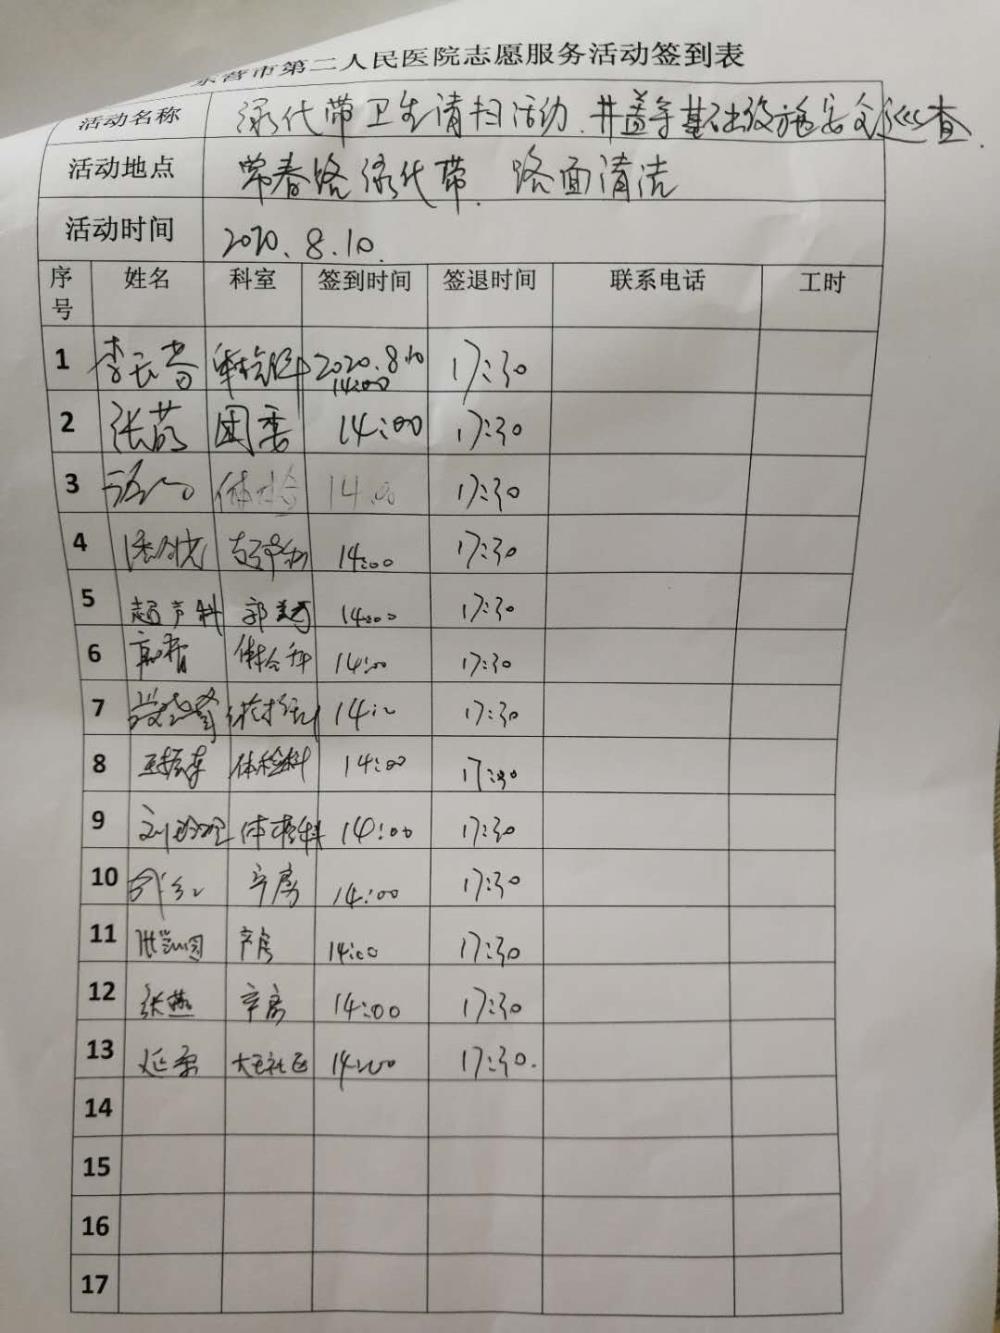 东营市第二人民医院志愿服务活动签到表
活动名称 绿化带卫生清扫活动、井盖等基础设施安全巡查
活动地点 常春路绿化带、路面清洁
活动时间 2020.8.10.
序号 姓名 科室 签到时间 签退时间 联系电话 工时
1 李长春 2020.8.10 14:00 17:30
2 张茹 团委 14:00 17:30
3 14:00 17:30
4 超声科 14:00 17:30
5 超声科 郭 14:00 17:30
6 郭 体检科 14:00 17:30
7 14:00 17:30
8 体检科 14:00 17:30
9 刘 体检科 14:00 17:30
10 产房 14:00 17:30
11 产房 14:00 17:30
12 张燕 产房 14:00 17:30
13 大王社区 14:00 17:30.
14
15
16
17